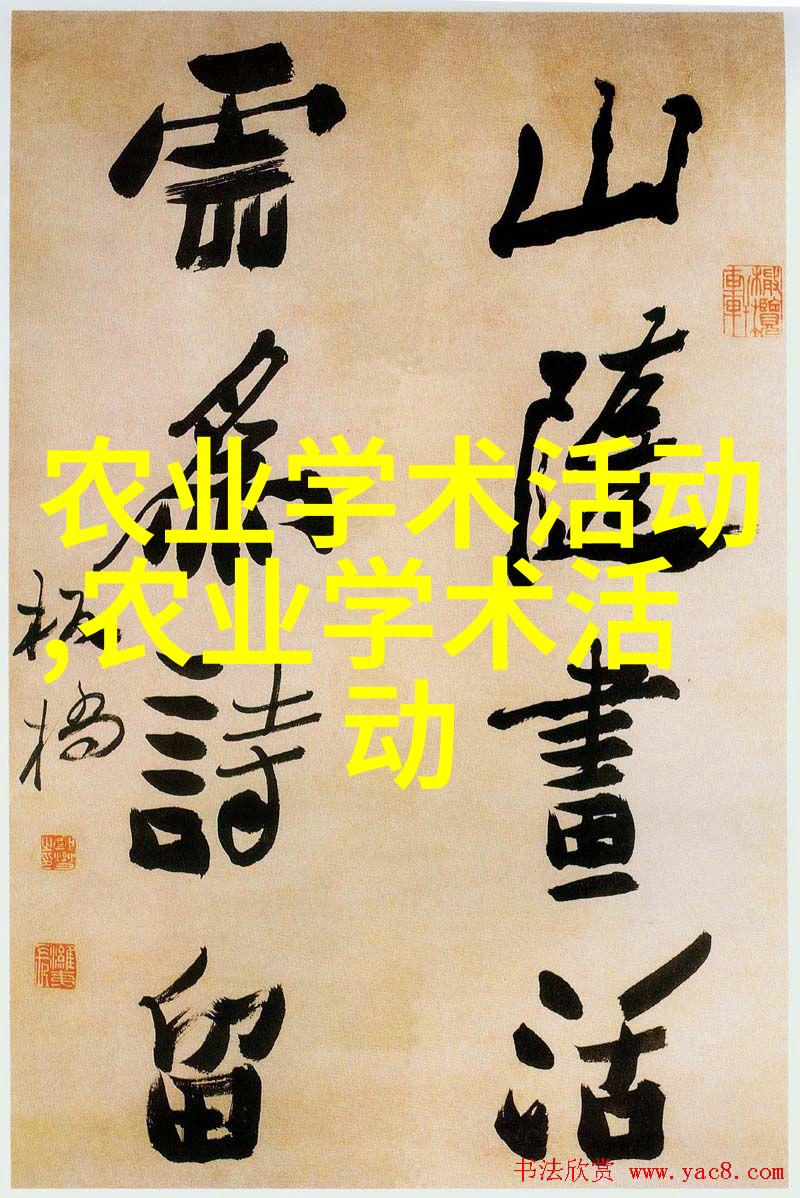 山隨畫活
雲爲詩留
板橋
农业学术活动
,农业学术活
动
书法欣赏 www.yac8.com